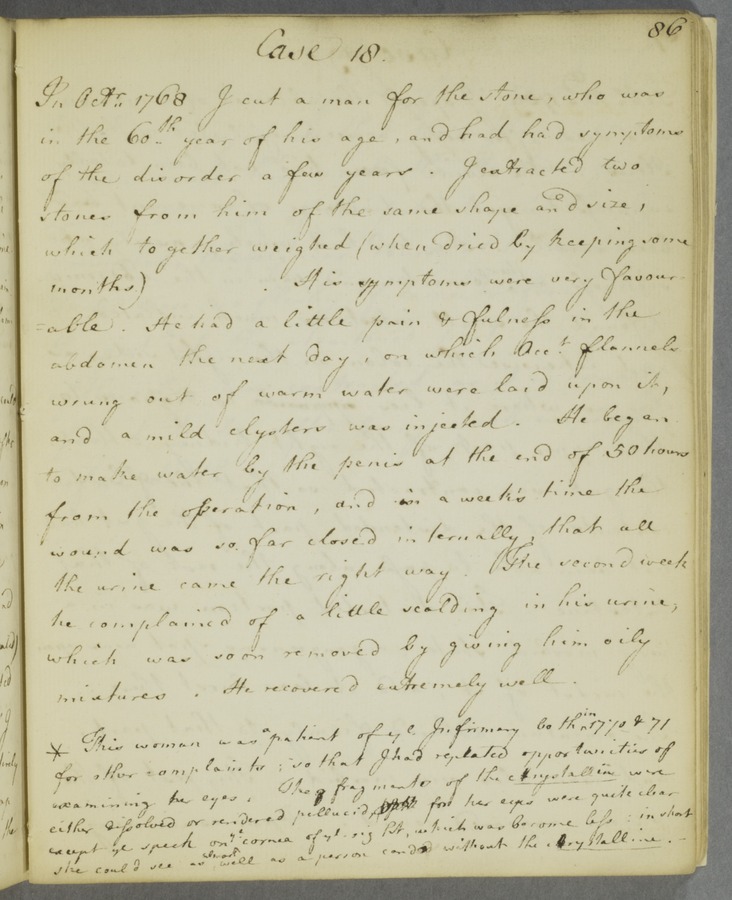 86
Case 18.
In Octr. 1768 I cut a man for the stone, who was
in the 60th. year of his age, and had had symptoms
of the disorder a few years. I extracted two
stones from him of the same shape and size,
which together weighed (when dried by keeping some
months) . His symptoms were very favour-
=able. He had a little pain & fulness in the
abdomen the next day, on which Acct. flannels
wrung out of warm water were laid upon it,
and a mild clysters was injected. He began
to make water by the penis at the end of 50 hours
from the operation, and in a week's time the
wound was so far closed internally, that all
the urine came the right way. The second week
he complained of a little scalding in his urine,
which was soon removed by giving him oily
mixtures. He recovered extremely well.
* This woman was a patient of ye. Infirmary both in 1770 & 71
for other complaints; so that I had repeated opportunities of
examining her eyes. The fragments of the crystalline were
either dissolved or rendered pellucid, for her eyes were quite clear
except ye speck on ye cornea of yt. right, which was become less: in short
she could see as well as a person could without the crystalline.